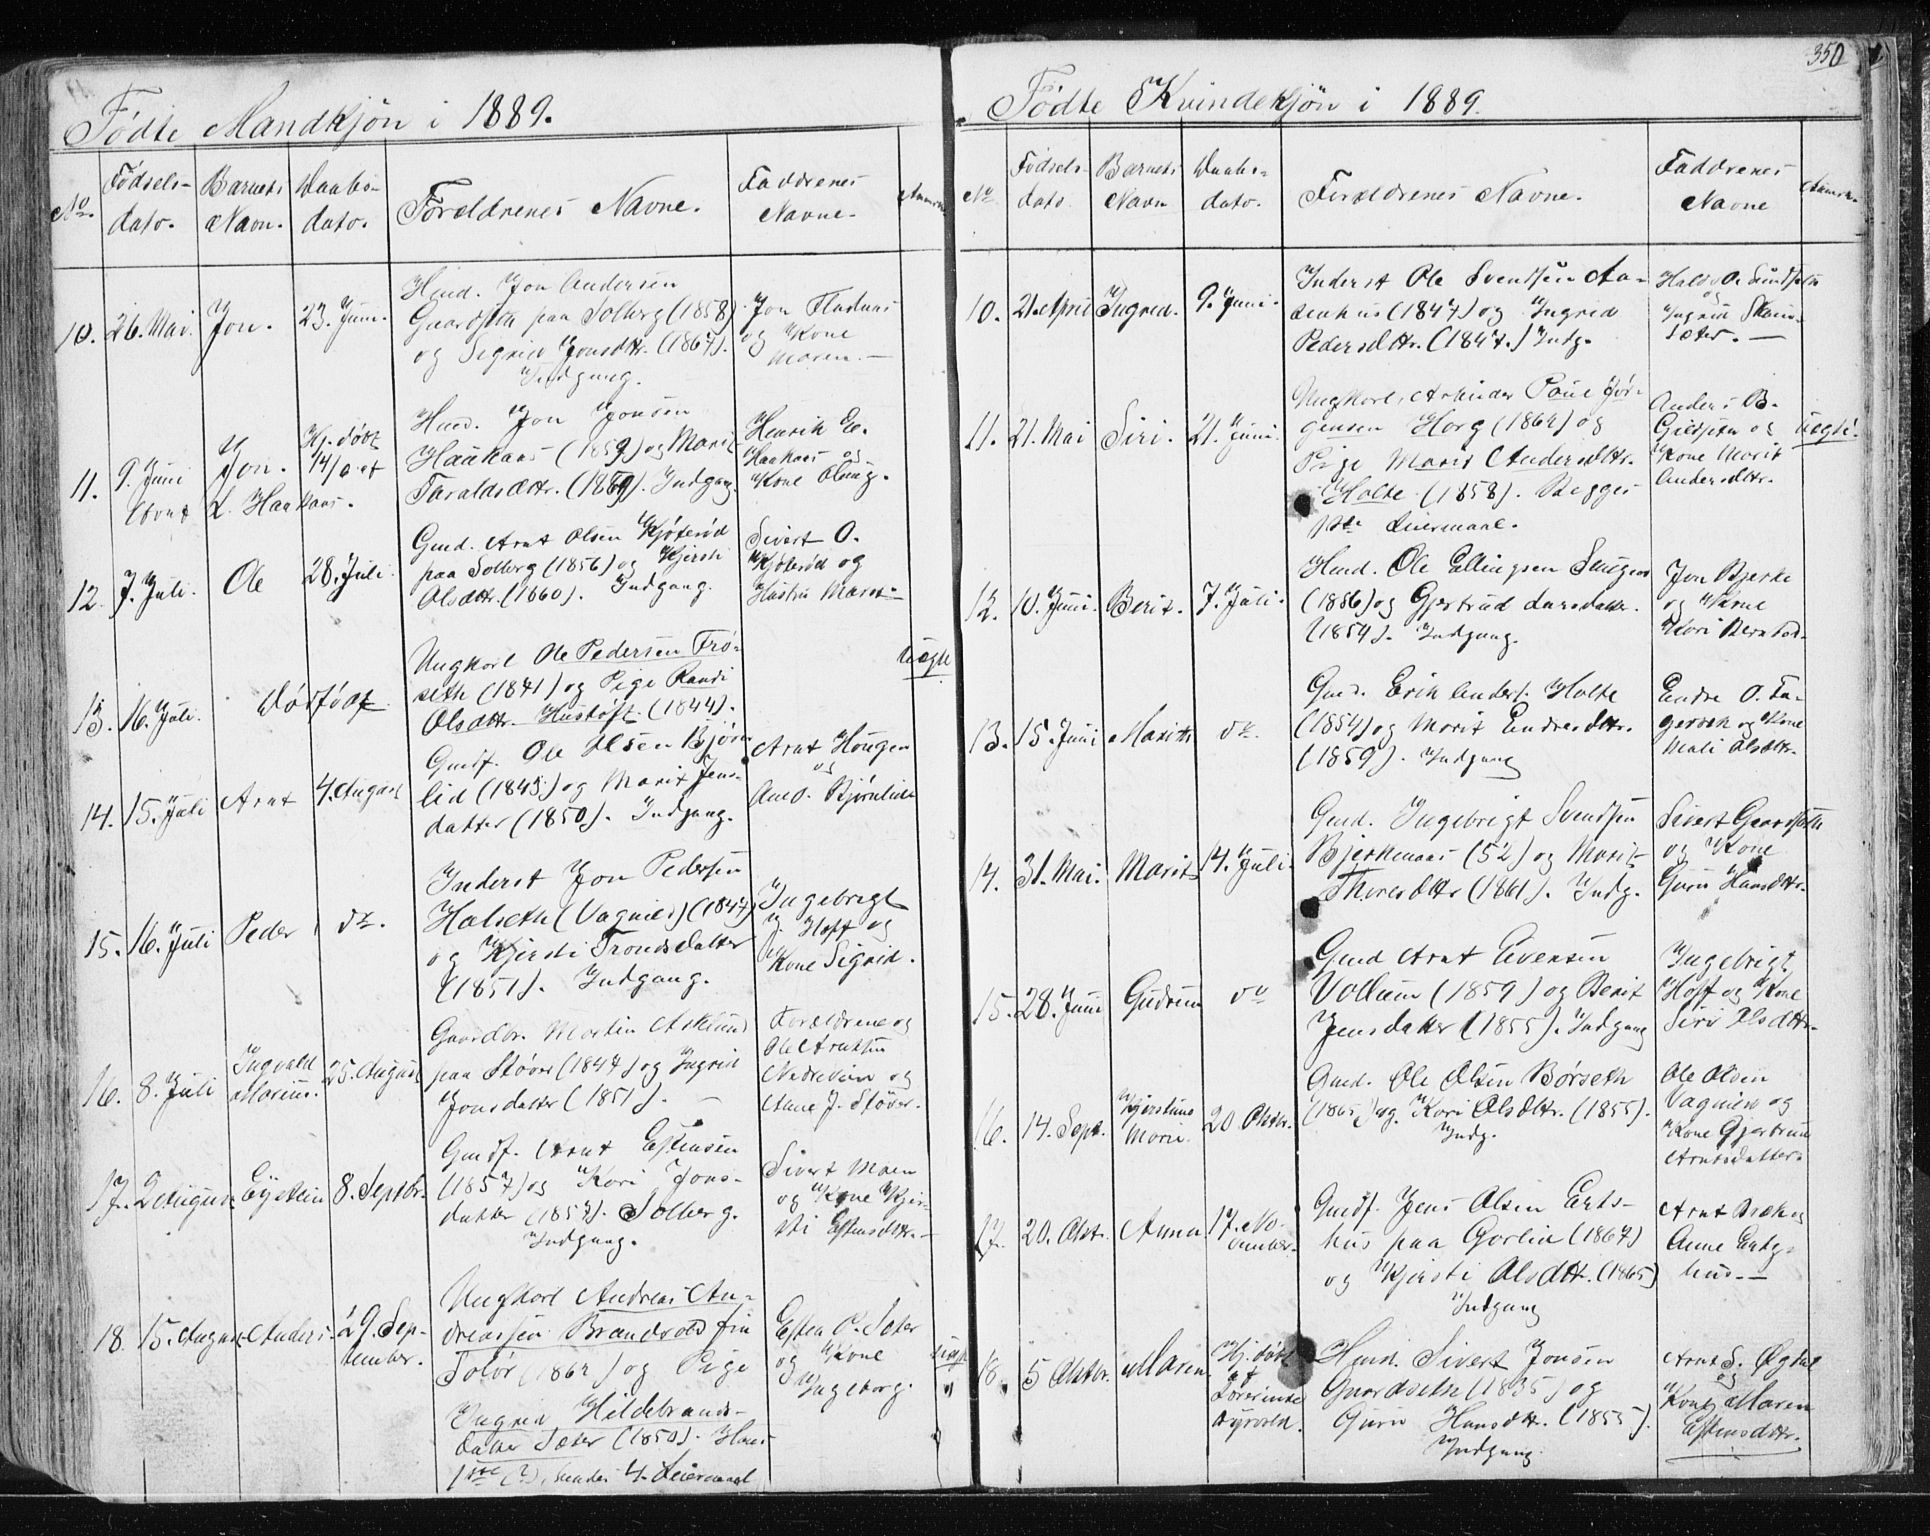 Fødte Mandkjön i 1889.
No. Fødsels-dato. Barnets Navn. Daabs-dato. Forældrenes Navne. Faddrenes Navne. Anmrk.
10. 26. Mai. Jon. 23. Juni.
Hmd. Jon Andersen
Guardseth paa Solberg (1858)
og Sigrid Jonsdttr. (1867).
Indgang.
Jon
og Kone
Maren. —
11. 9. Juni Jon.
L. Haukaas.
Hj. døbt
14/6 af
Hmd. Jon Jonsen
Haukaas (1859) og Marit
Taraldsdttr. (1869). Indgang.
Henrik E.
Haukaas og
Kone Oling.
12. 7. Juli. Ole 28. Juli.
Gmd. Arnt Olsen Kjöterød
paa Solberg (1856) og Kjersti
Olsdttr. (1860). Indgang.
Sivert O.
Kjöterød og
Hustru Marit
13. 16. Juli. Dødfødt
Ungkarl Ole Pedersen Frø-
seth (1841) og Pige Randi
Olsdttr. Hustoft (1844).
Uægte
14. 15. Juli Arnt 4. August
Gmdf. Ole Olsen Bjørn
lid (1843) og Marit Jens-
datter (1850). Indgang.
Arnt Hougen
og
Ane O. Bjørnlid
15. 16. Juli Peder do.
Inderst Jon Pedersen
Halseth (Vagnild) (1847)
og Kjersti Trondsdatter
(1851). Indgang.
Ingebrigt
Hoff og
Kone Sigrid.
16. 8. Juli Ingvald
Marius. 25. August
Gaardbr. Martin Asklund
paa Støver (1847) og Ingrid
Jonsdatter (1851). —
Forældrene og
Ole Arntsen
og
Anne J. Støver.
17. 2 August Eystein 8. Septbr.
Gmdf. Arnt Estensen
(1857) og Kari Jons-
datter (1857). Solberg.
Indgang.
Sivert Moen
og Kone Kjer-
sti Estensdttr. —
18. 15. August Anders 29. Sep-
tember.
Ungkarl Andreas An-
dreassen Brandvold fra
Solør (1862) og Pige
Ingrid Hildebrands-
datter Sæter (1850). Hans
1ste (?), hendes 4. Leiermaal
Esten P. Seter
og Kone
Ingeborg.
350
Fødte Kvindekjön i 1889.
No Fødsels-dato. Barnets Navn Daabs-dato. Forældrenes Navne. Faddrenes Navne Anmrk.
10. 21. April Ingrid. 9. Juni.
Inderst Ole Svendsen Aa-
senhus (1847) og Ingrid
Pedersdttr. (1847.) Indg.
og
Ingrid
sæter. —
11. 21. Mai Siri. 21. Juni.
Ungkarl, Arbeider Paul Jör-
gensen Horg (1862) og
Pige Marit Andersdttr.
Holte. (1858). Begges
1ste Leiermaal.
Anders B.
Gildseth og
Kone Marit
Andersdttr.
Uægte.
12. 10. Juni. Berit. 7. Juli.
Hmd. Ole Ellingsen
(1856) og Gjertrud Larsdatter.
(1854). Indgang.
Jon Bjerke
og Kone
Kari
13. 15. Juni Marith do.
Gmd. Erik Anders. Holte
(1854) og Marit Endresdttr.
(1859). Indgang
Endre O. Fa-
gerbek og Kone
Mali Olsdttr.
14. 31. Mai. Marit 14. Juli.
Gmd. Ingebrigt Svendsen
Bjerkenaas (52) og Marit
Thoresdttr (1861). Indg.
Sivert Guardseth
og Kone
Guru Hansdttr.
15. 28. Juni Gudrun do
Gmd Arnt Evensen
Vollum (1859) og Berit
Jensdatter (1855). Indgang
Ingebrigt
Hoff og Kone
Siri Olsdttr.
16. 14. Sept. Kjerstine
Marie. 20 Oktbr.
Gmd. Ole Olsen Børseth
(1865) og Kari Olsdttr. (1855).
Indg.
Ole Olsen
Vagnild og
Kone Gjertrud
Arntsdatter.
17. 20. Oktbr. Anna 17. No-
vember.
Gmdf. Jens Olsen Erts-
hus paa Gorlia (1867)
og Kjersti Olsdttr. (1865)
Indgang
Arnt Bæk og
Anne Erts-
hus. —
18. 5 Oktbr. Maren
Hj. døbt
af
Lærerinde
Hmd. Sivert Jonsen
Guardseth (1835) og
Guru Hansdttr. (1855).
Indgang.
Arnt S. Øgdal
og
Kone Maren
Estensdttr.